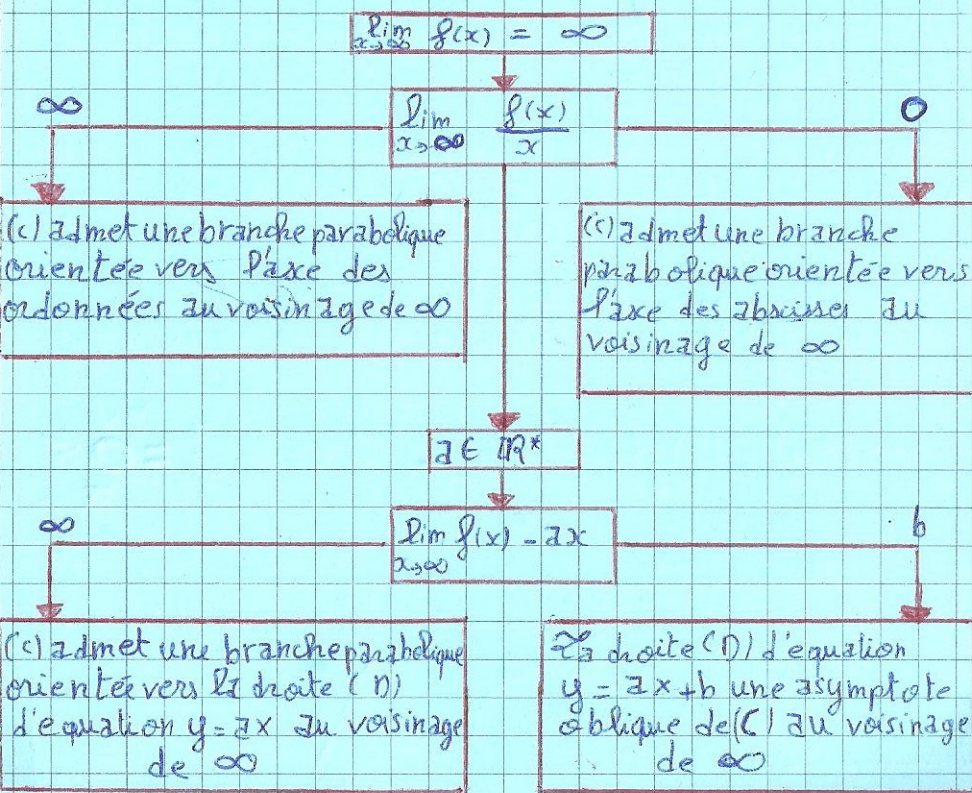 lim f(x) = ∞
x→∞
∞
lim f(x)/x
x→∞
0
(C) admet une branche parabolique
orientée vers l'axe des
ordonnées au voisinage de ∞
(C) admet une branche
parabolique orientée vers
l'axe des abscisses au
voisinage de ∞
a ∈ IR*
∞
lim f(x) - ax
x→∞
b
(C) admet une branche parabolique
orientée vers la droite (D)
d'equation y = ax au voisinage
de ∞
La droite (D) d'équation
y = ax+b une asymptote
oblique de (C) au voisinage
de ∞